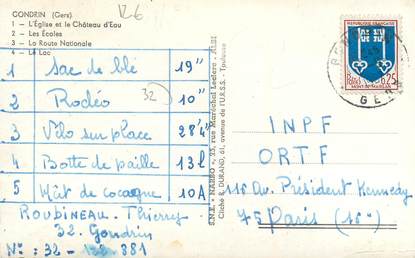 GONDRIN (Gers)
126
1 - L'Église et le Château d'Eau
2 - Les Écoles
3 - La Route Nationale
4 - Le Lac
1 Sac de blé 19"
2 Rodéo 10"
32
3 Vélo sur place 28"4
4 Botte de paille 13l
5 Mât de cocagne 10A
ROUDINEAU Thierry
32. Gondrin
N°: 32-132-881
S.N.E. - NARBO - 23, rue Maréchal Leclerc - ALBI
Cliché E. DURAND, 61, avenue de l'U.R.S.S. - Toulouse
REPUBLIQUE FRANÇAISE
POSTES
0,25
MONT-DE-MARSAN
GERS
INPF
ORTF
116 Av. Président Kennedy
75 Paris (16e)